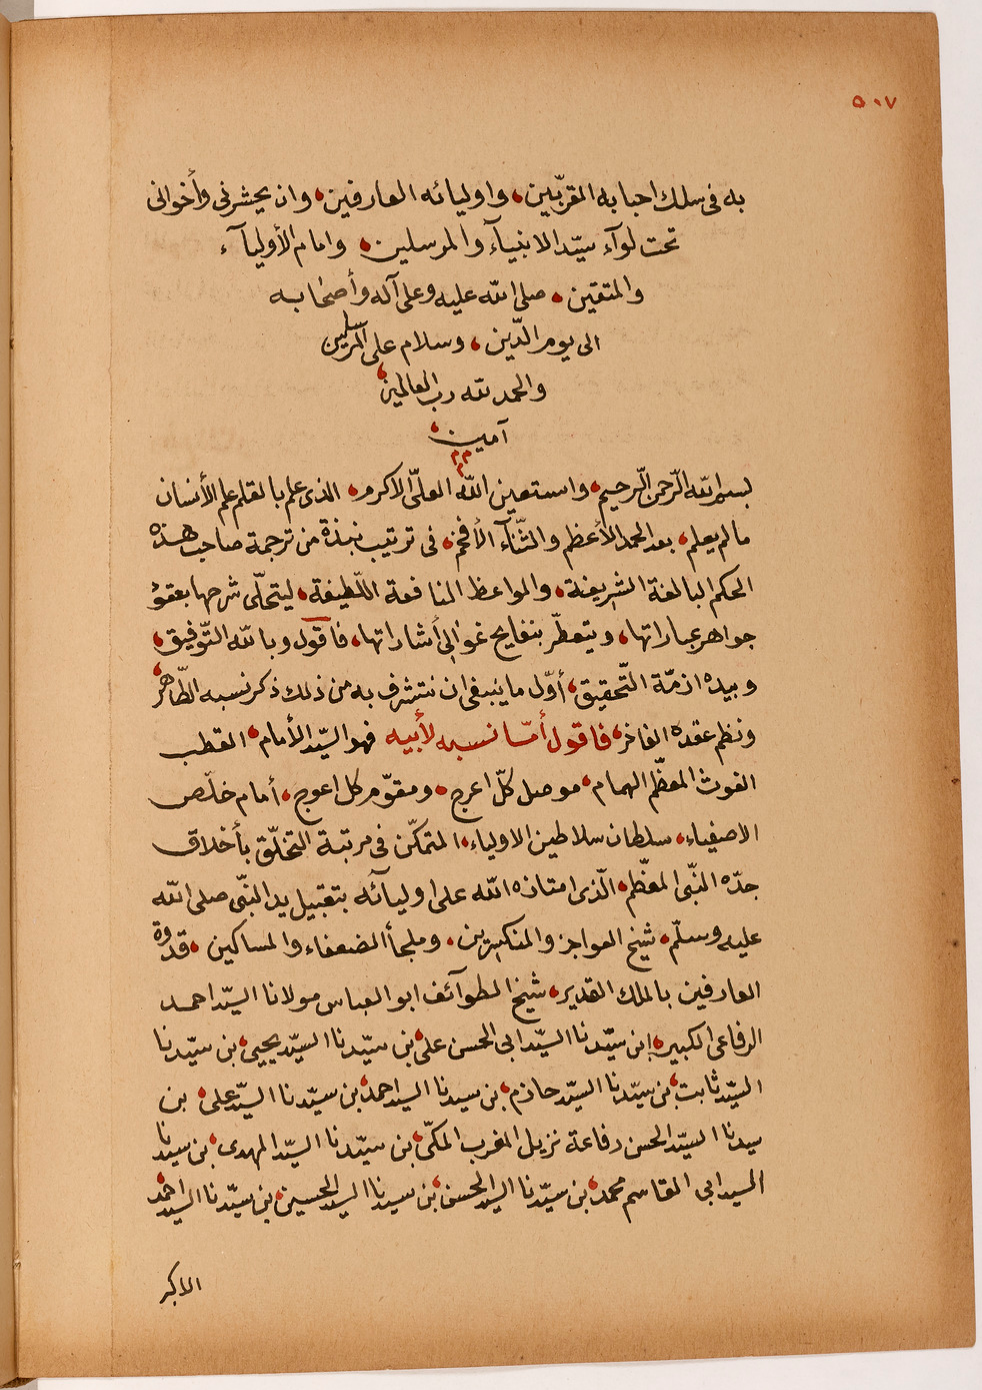 ٥٠٧
به فى سلك احبابه المقربّين، واوليائه العارفين، وان يحشرنى وأخوانى
تحت لوآء سيّد الانبيآء والمرسلين، وامام الأوليآء
والمتقين، صلى الله عليه وعلى آله وأصحابه
الى يوم الدّين، وسلام على المرسلين
والحمد لله رب العالمين،
آمين،
م م م
بسم الله الرّحمن الرّحيم، واستعين الله العلىّ الاكرم، الذى علم بالقلم علم الأنسان
مالم يعلم، بعد الحمد الأعظم والثّنآء الأفخم، فى ترتيب نبذة من ترجمة صاحب هذه
الحكم البالغة الشريفة، والمواعظ النافعة اللّطيفة، ليتحلّى شرحها بعقود
جواهر عباراتها، ويتعطّر بنفايح غوالى أشاراتها، فاقول وبالله التّوفيق،
وبيده ازمّة التّحقيق، أوّل ما ينبغى ان نتشرف به من ذلك ذكر نسبه الطّاهر،
ونظم عقده الفاخر، فاقول أمّا نسبه لأبيه فهو السّيد الأمام، القطب
الغوث المعظّم الهمام، موصل كلّ اعرج، ومقوّم كل اعوج، أمام خلّص
الاصفياء، سلطان سلاطين الاولياء، المتمكّن فى مرتبة التخلّق بأخلاق
جدّه النّبى المعظّم، الّذى امتازه الله على اوليآئه بتقبيل يد النبّى صلى الله
عليه وسلّم، شيخ العواجز والمنكسرين، وملجأ الضعفاء والمساكين، قدوة
العارفين بالملك القدير، شيخ الطوآئف ابو العباس مولانا السيّد احمد
الرفاعى الكبير، ابن سيّدنا السيّد ابى الحسن على، بن سيّدنا السيّد يحيى، بن سيّدنا
السيّد ثابت، بن سيّدنا السيّد حازم، بن سيدنا السيد احمد، بن سيّدنا السيّد على، بن
سيدنا السيّد الحسن رفاعة نزيل المغرب المكّى، بن سيّدنا السيّد المهدى، بن سيدنا
السيد ابى القاسم محمد، بن سيّدنا السيد الحسن، بن سيدنا السيد الحسين، بن سيّدنا السيد احمد،
الاكبر